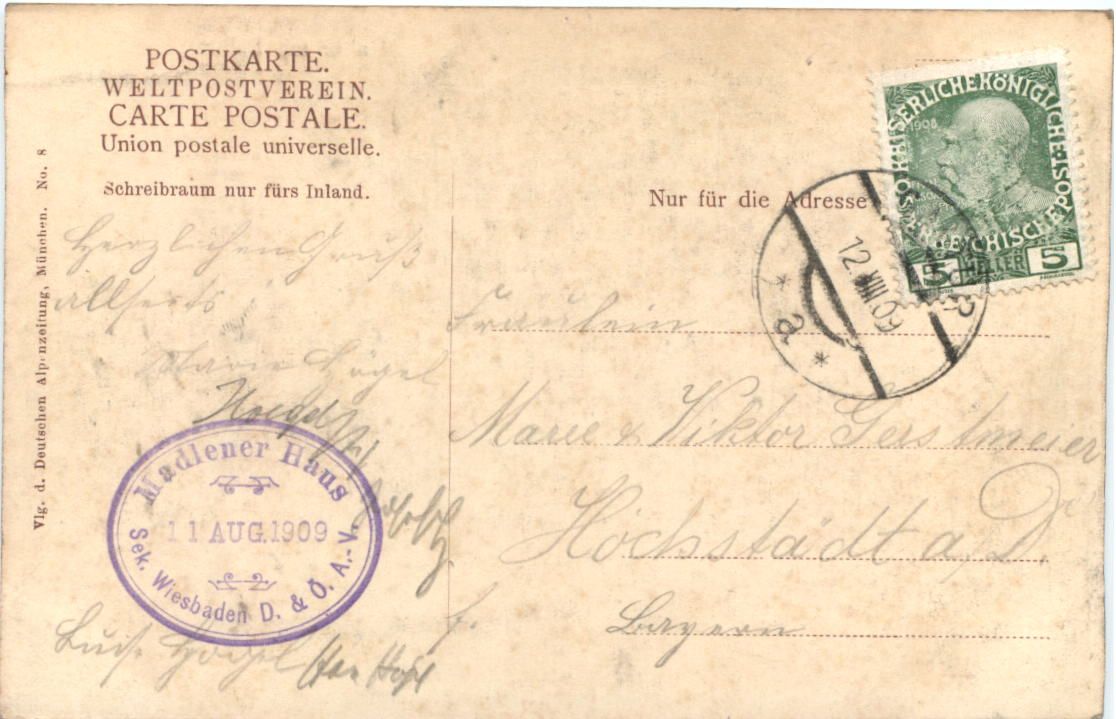 POSTKARTE.
WELTPOSTVEREIN.
CARTE POSTALE.
Union postale universelle.
Schreibraum nur fürs Inland.
Nur für die Adresse
Vlg. d. Deutschen Alpenzeitung, München. No. 8
KAISERLICHE KÖNIGLICHE
ÖSTERREICHISCHE POST
1908
5 HELLER 5
12.VIII 09
a
Herzlichen Gruß
allseits
Marie
Madlener Haus
11 AUG. 1909
Sek. Wiesbaden D. & Ö. A.-V.
Fräulein
Marie & Viktor Gerstmeier
Höchstädt a. D.
Bayern